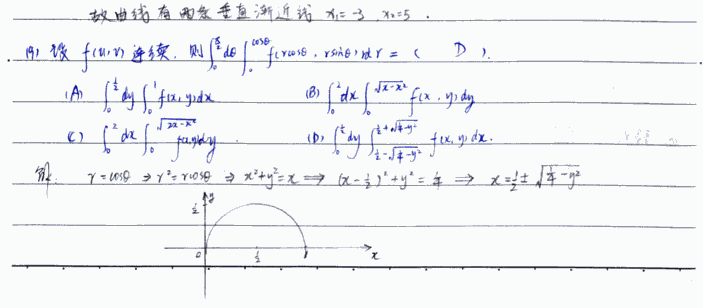 故曲线有两条垂直渐近线 x₁=-3, x₂=5.
(9) 设 f(u,v) 连续, 则 ∫₀^{π/2} dθ ∫₀^{cosθ} f(rcosθ, rsinθ) r dr = ( D ).
(A) ∫₀^{1/2} dy ∫₀^1 f(x,y) dx (B) ∫₀^2 dx ∫₀^{√(x-x²)} f(x,y) dy
(C) ∫₀^2 dx ∫₀^{√(2x-x²)} f(x,y) dy. (D) ∫₀^{1/2} dy ∫_{1/2-√(1/4-y²)}^{1/2+√(1/4-y²)} f(x,y) dx.
解: r=cosθ ⇒ r²=rcosθ ⇒ x²+y²=x ⟹ (x-1/2)²+y²=1/4 ⟹ x=1/2±√(1/4-y²)
y
1/2
0 1/2 1 x